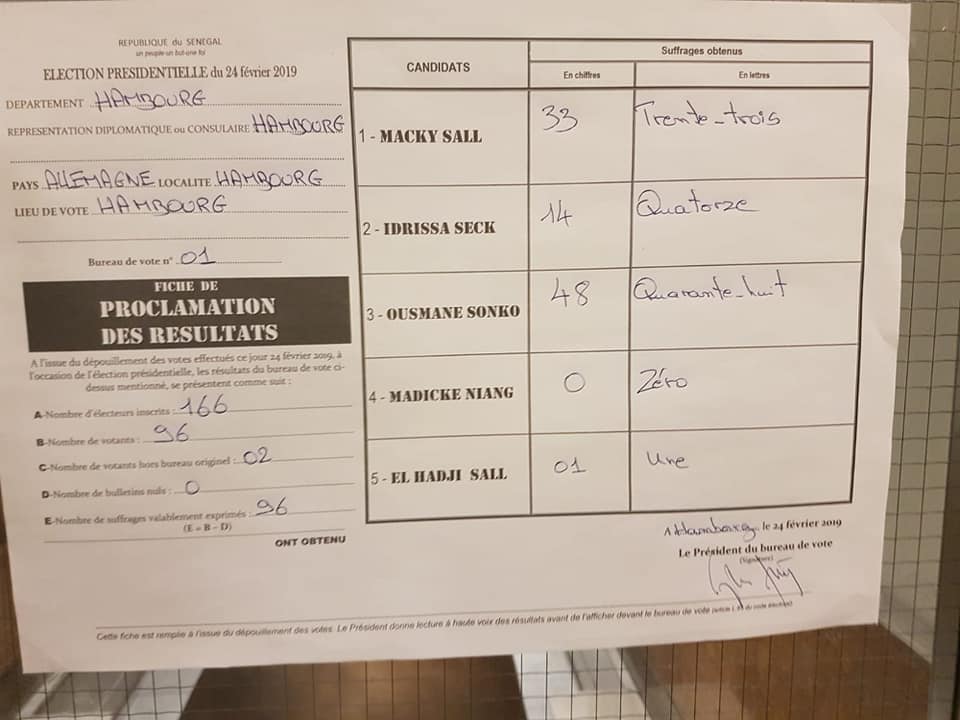 REPUBLIQUE du SENEGAL
un peuple-un but-une foi
ELECTION PRESIDENTIELLE du 24 février 2019
DEPARTEMENT HAMBOURG
REPRESENTATION DIPLOMATIQUE ou CONSULAIRE HAMBOURG
PAYS ALLEMAGNE LOCALITE HAMBOURG
LIEU DE VOTE HAMBOURG
Bureau de vote n° 01
FICHE DE
PROCLAMATION
DES RESULTATS
A l'issue du dépouillement des votes effectués ce jour 24 février 2019, à
l'occasion de l'élection présidentielle, les résultats du bureau de vote ci-
dessus mentionné, se présentent comme suit :
A-Nombre d'électeurs inscrits : 166
B-Nombre de votants : 96
C-Nombre de votants hors bureau originel : 02
D-Nombre de bulletins nuls : 0
E-Nombre de suffrages valablement exprimés : 96
(E = B - D)
ONT OBTENU
CANDIDATS
Suffrages obtenus
En chiffres
En lettres
1 - MACKY SALL 33 Trente-trois
2 - IDRISSA SECK 14 Quatorze
3 - OUSMANE SONKO 48 Quarante-huit
4 - MADICKE NIANG 0 Zéro
5 - EL HADJI SALL 01 Une
A Hambourg, le 24 février 2019
Le Président du bureau de vote
(Signature)
Cette fiche est remplie à l'issue du dépouillement des votes. Le Président donne lecture à haute voix des résultats avant de l'afficher devant le bureau de vote